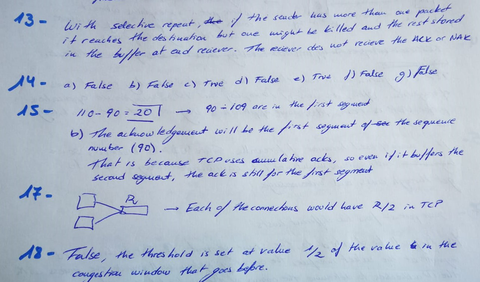 13- With selective repeat, if the sender has more than one packet
it reaches the destination but one might be killed and the rest stored
in the buffer at end reciever. The reciever does not recieve the ACK or NAK
14- a) False b) False c) True d) False e) True f) False g) False
15- 110 - 90 = 20 → 90 ÷ 109 are in the first segment
b) The acknowledgement will be the first segment of the sequence
number (90).
That is because TCP uses cumulative acks, so even if it buffers the
second segment, the ack is still for the first segment
17- R → Each of the connections would have R/2 in TCP
18- False, the threshold is set at value 1/2 of the value in the
congestion window that goes before.